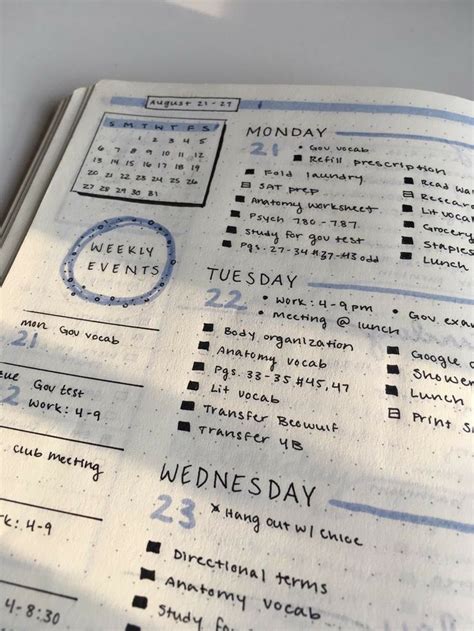 August 21-27
S M T W T F S
1 2 3 4 5
6 7 8 9 10 11 12
13 14 15 16 17 18 19
20 21 22 23 24 25 26
27 28 29 30 31
WEEKLY
EVENTS
mon Gov vocab
21
Gov test
Work: 4-9
club meeting
4-9
4-8:30
MONDAY
21
• Gov vocab
• Refill prescription
Fold laundry
SAT prep
Anatomy worksheet
Psych 780-787
Study for gov test
Pgs. 27-34 #37-#43 odd
Read
Lit vocab
Grocery
Staples
Lunch
TUESDAY
22
• Work: 4-9pm
• meeting @ lunch
• Gov
Body organization
Anatomy vocab
Pgs. 33-35 #45, 47
Lit vocab
Transfer Beowulf
Transfer YB
Google
Lunch
Print
WEDNESDAY
23
× Hang out w/ Chloe
Directional terms
Anatomy vocab
Study